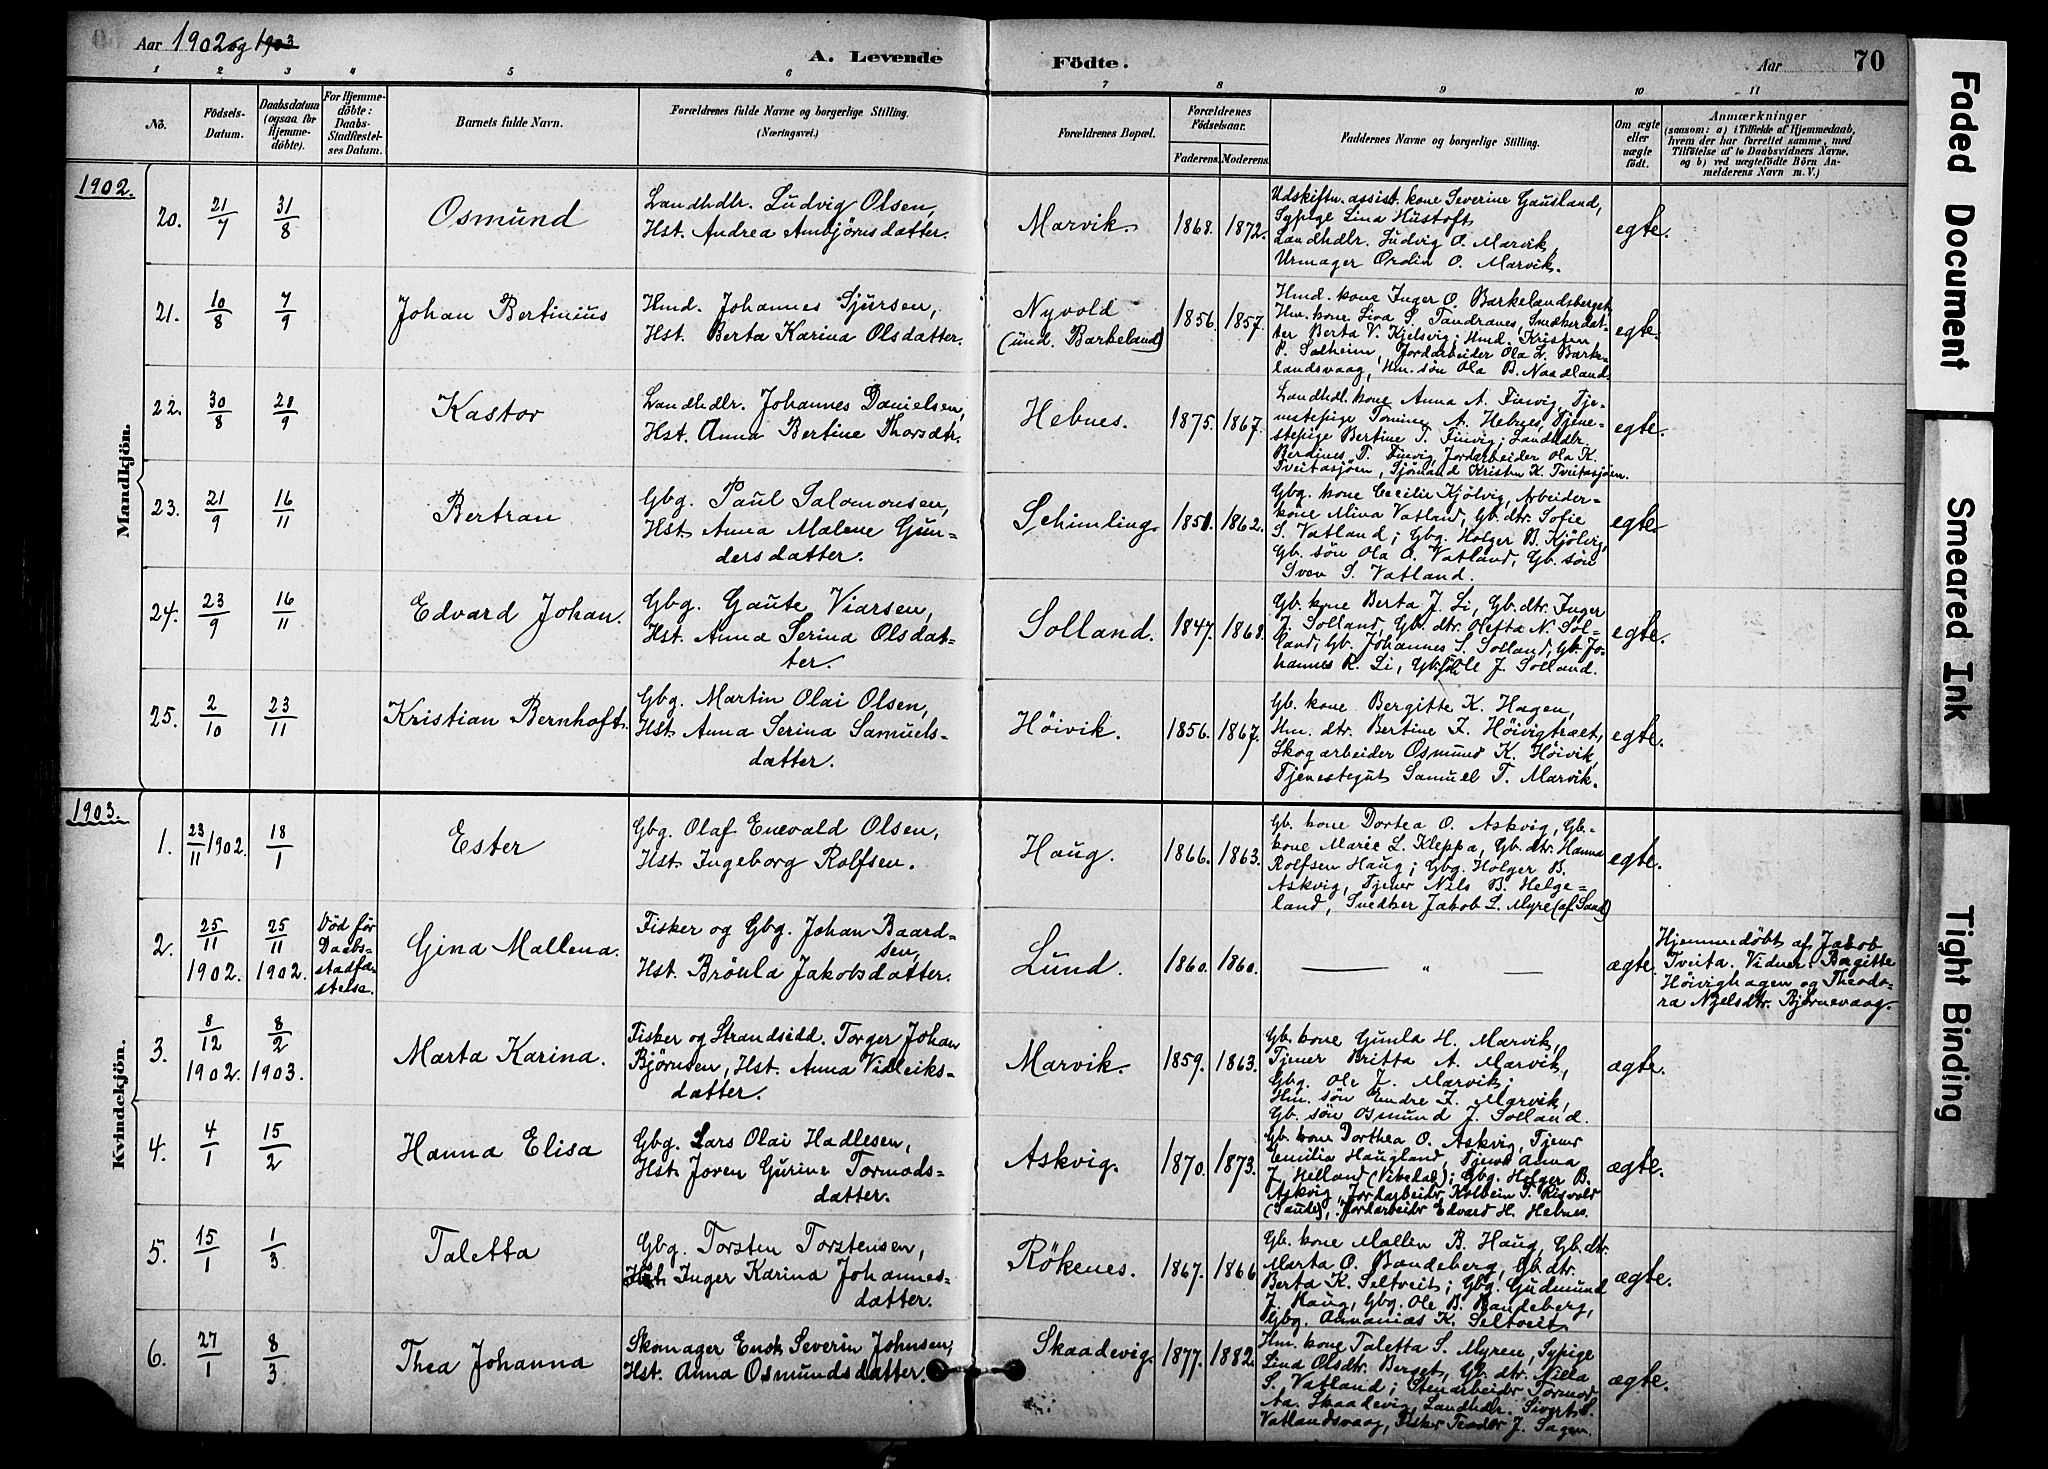 Aar 1902 og 1903
A. Levende Födte.
Aar
70
1 2 3 4 5 6 7 8 9 10 11
No.
Födsels-Datum.
Daabsdatum (ogsaa for Hjemmedöbte).
For Hjemmedöbte: Daabs-Stadfæstelses Datum.
Barnets fulde Navn.
Forældrenes fulde Navne og borgerlige Stilling. (Næringsvei.)
Forældrenes Bopæl.
Forældrenes Födselsaar.
Faderens. Moderens.
Faddernes Navne og borgerlige Stilling.
Om ægte eller uægte födt.
Anmærkninger
(saasom: a) i Tilfælde af Hjemmedaab, hvem der har forrettet samme, med Tilföielse af to Daabsvidners Navne, og b) ved uægtefödte Börn Anmelderens Navn m. V.)
1902.
Mandkjön.
20. 21/7 31/8 Osmund
Landhdlr. Ludvig Olsen,
Hst. Andrea Ambjörnsdatter.
Marvik. 1868. 1872.
Udskiftn. assist. kone Severine Gausland,
Sypige Lina Hustoft,
Landhdlr. Ludvig O. Marvik,
Urmager Ordin O. Marvik.
egte.
21. 10/8 7/9 Johan Bertinius
Hmd. Johannes Sjursen,
Hst. Berta Karina Olsdatter.
Nyvold
(und. Barkeland)
1856. 1857.
Hmd. kone Inger O. Barkelandsberget
Hm. kone Liva S. Tandranes, Snedkerdat-
ter Berta V. Kjelsvig; Hmd. Kristen
P. Solheim, Jordarbeider Ola L. Barke-
landsvaag, Hm. sön Ola B. Naadland.
egte.
22. 30/8 20/9 Kastor
Landhdlr. Johannes Danielsen,
Hst. Anna Bertine Thorsdtr.
Hebnes. 1875. 1867.
Landhdl. kone Anna A. Finvig, Tje-
nstepige Tomine A. Hebnes, Tjene-
stepige Bertine T. Finvig; Landhdlr.
Berdines T. Finvig, Jordarbeider Ola K.
Tveitasjöen, Sjömand Kristen K. Tveitasjöen.
egte.
23. 21/9 16/11 Bertran
Gbg. Paul Salomonsen,
Hst. Anna Malene Gun-
dersdatter.
Schimling. 1851. 1862.
Gbg. kone Cecilie Kjölvig, Arbeider-
kone Mina Vatland, Gb. dtr. Sofie
S. Vatland; Gbg. Holger B. Kjölvig,
Gb. sön Ola O. Vatland, Gb. sön
Sven S. Vatland.
egte.
24. 23/9 16/11 Edvard Johan.
Gbg. Gaute Viarsen,
Hst. Anna Serina Olsdat-
ter.
Solland. 1847. 1868.
Gb. kone Berta J. Li, Gb. dtr. Inger
J. Solland, Gb. dtr. Olefta N. Sol-
land, Gb. Johannes S. Solland, Gb. Jo-
hannes R. Li, Gb. sön Ole J. Solland.
egte.
25. 2/10 23/11 Kristian Bernhoft.
Gbg. Martin Olai Olsen,
Hst. Anna Serina Samuels-
datter.
Höivik. 1856. 1867.
Gb. kone Bergitte K. Hagen,
Hm. dtr. Bertine F. Höivigtræet,
Skogarbeider Osmund K. Höivik,
Tjenestegut Samuel T. Marvik.
egte.
1903.
Kvindekjön.
1. 23/11 1902. 18/1 Ester
Gbg. Olaf Enevald Olsen,
Hst. Ingeborg Rolfsen.
Haug. 1866. 1863.
Gb. kone Dortea O. Askvig, Gb.
kone Marie L. Kleppa, Gb. dtr. Hanna
Rolfsen Haug; Gbg. Holger B.
Askvig, Tjener Nils B. Helge-
land, Snedker Jakob L. Myre (af Sand)
egte.
2. 25/11 1902. 25/11 1902.
Död för
Daabs-
stadfæ-
stelse.
Gina Mallena.
Fisker og Gbg. Johan Baard-
sen,
Hst. Bröula Jakobsdatter.
Lund. 1860. 1860.
— " —
ægte.
Hjemmedöbt af Jakob
Tveita. Vidner: Bergitte
Höivighagen og Theodo-
ra Njelsdtr. Björnevaag.
3. 8/12 1902. 8/2 1903. Marta Karina.
Fisker og Strandsidd. Torger Johan
Björnsen, Hst. Anna Vidleiks-
datter.
Marvik. 1859. 1863.
Gb. kone Gunla H. Marvik,
Tjener Britta A. Marvik,
Gbg. Ole J. Marvik;
Hm. sön Endre F. Marvik,
Gb. sön Osmund J. Solland.
ægte.
4. 4/1 15/2 Hanna Elisa
Gbg. Lars Olai Hadlesen,
Hst. Joren Gurine Tormods-
datter.
Askvig. 1870. 1873.
Gb. kone Dorthea O. Askvig, Tjener
Emilia Haugland, Tjener Anna
J. Helland (Vikedal); Gbg. Holger B.
Askvig, Jordarbeidr. Kolbein T. Risvold
(Saude), Jordarbeidr. Edvard H. Hebnes.
ægte.
5. 15/1 1/3 Taletta
Gbg. Torsten Torstensen,
Hst. Inger Karina Johannes-
datter.
Rökenes. 1867. 1866.
Gb. kone Mallen B. Haug, Gb. dtr.
Marta O. Bandeberg, Gb. dtr.
Berta K. Seltveit; Gbg. Gudmund
J. Haug, Gbg. Ole B. Bandeberg,
Gbg. Annanias K. Seltveit.
ægte.
6. 27/1 8/3 Thea Johanna
Skomager Enok Severin Johnsen,
Hst. Anna Osmundsdatter.
Skaadevig. 1877. 1882.
Hm. kone Taletta S. Myren, Sypige
Lina Olsdtr. Berget, Gb. dtr. Nilla
S. Vatland; Stenarbeidr. Tormod
Aa. Skaadevig, Landhdlr. Sivert S.
Vatlandsvaag, Fisker Teodor J. Sagen.
ægte.
Faded Document
Smeared Ink
Tight Binding